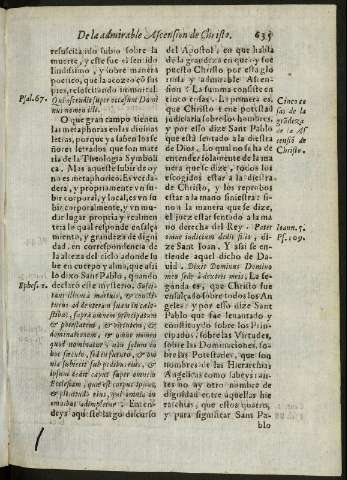 De la admirable Ascension de Christo. 635
resuscitando subio sobre la
muerte, y este fue el sentido
lindissimo, y sobre manera
poetico, que la acozeò cõ sus
pies, resuscitando inmortal
Psal. 67. Qui ascendit super occasum Domi
nus nomen illi.
O que gran campo tienen
las metaphoras en las divinas
letras, porque ya saben los se
ñores letrados que son mate
ria de la Theologia Symboli
ca. Mas aqueste subir de oy
no es metaphorico. Es verda
dera, y propriamente vn su
bir corporal, y local, es vn su
bir corporalmente, y vn mu
dar lugar propria y realmen
te a lo qual responde ensalça
miento, y grandeza de digni
dad, en correspondencia de
la alteza del cielo adonde su
be en cuerpo y alma, que assi
lo dixo Sant Pablo, quando
Ephes. 1. declarò este mysterio.
tans illum à mortuis, & consti
tuens ad dexteram suam in cœle
stibus, supra omnem principatum
& potestatem, & virtutem, &
dominationem, & omne nomen
quod nominatur, non solum in
hoc sæculo, sed in futuro, & om
nia subiecit sub pedibus eius, &
ipsum dedit caput super omnem
Ecclesiam, quæ est corpus ipsius,
& plenitudo eius, qui omnia in
omnibus adimpletur. Enten
deys aqueste largo discurso
del Apostol, en que habla
de la grandeza en que fue
puesto Christo por esta glo
riosa y admirable Ascen
sion? La summa consiste en
cinco cosas. La primera es,
Cinco co
sas de la
grãdeza
de la As
censiõ de
Christo.
que Christo tiene potestad
judiciaria sobre los hombres,
y por esso dize Sant Pablo
que està sentado a la diestra
de Dios. Lo qual no se ha de
entender solamente de la ma
nera que se dize, todos los
escogidos estar a la diestra
de Christo, y los reprobos
estar a la mano siniestra: si-
no a la manera que se dize,
el juez estar sentado a la ma
no derecha del Rey. Pater
omne iudicium dedit filio, di
ze Sant Ioan. Y assi se en-
Ioann. 5.
Ps. 109.
tiende aquel dicho de Da
vid. Dixit Dominus Domino
meo sede à dextris meis. La se
gunda es, que Christo fue
ensalçado sobre todos los An
geles: y por esso dize Sant
Pablo que fue leuantado y
constituydo sobre los Prin-
cipados, sobre las Virtudes,
sobre las Dominaciones, so-
bre las Potestades, que son
nombres de las Hierarchias
Angelicas como sabeys: an-
tes no ay otro nombre de
dignidad entre aquellas hie
rarchias, que estos quatro,
y para significar Sant Pa-
blo